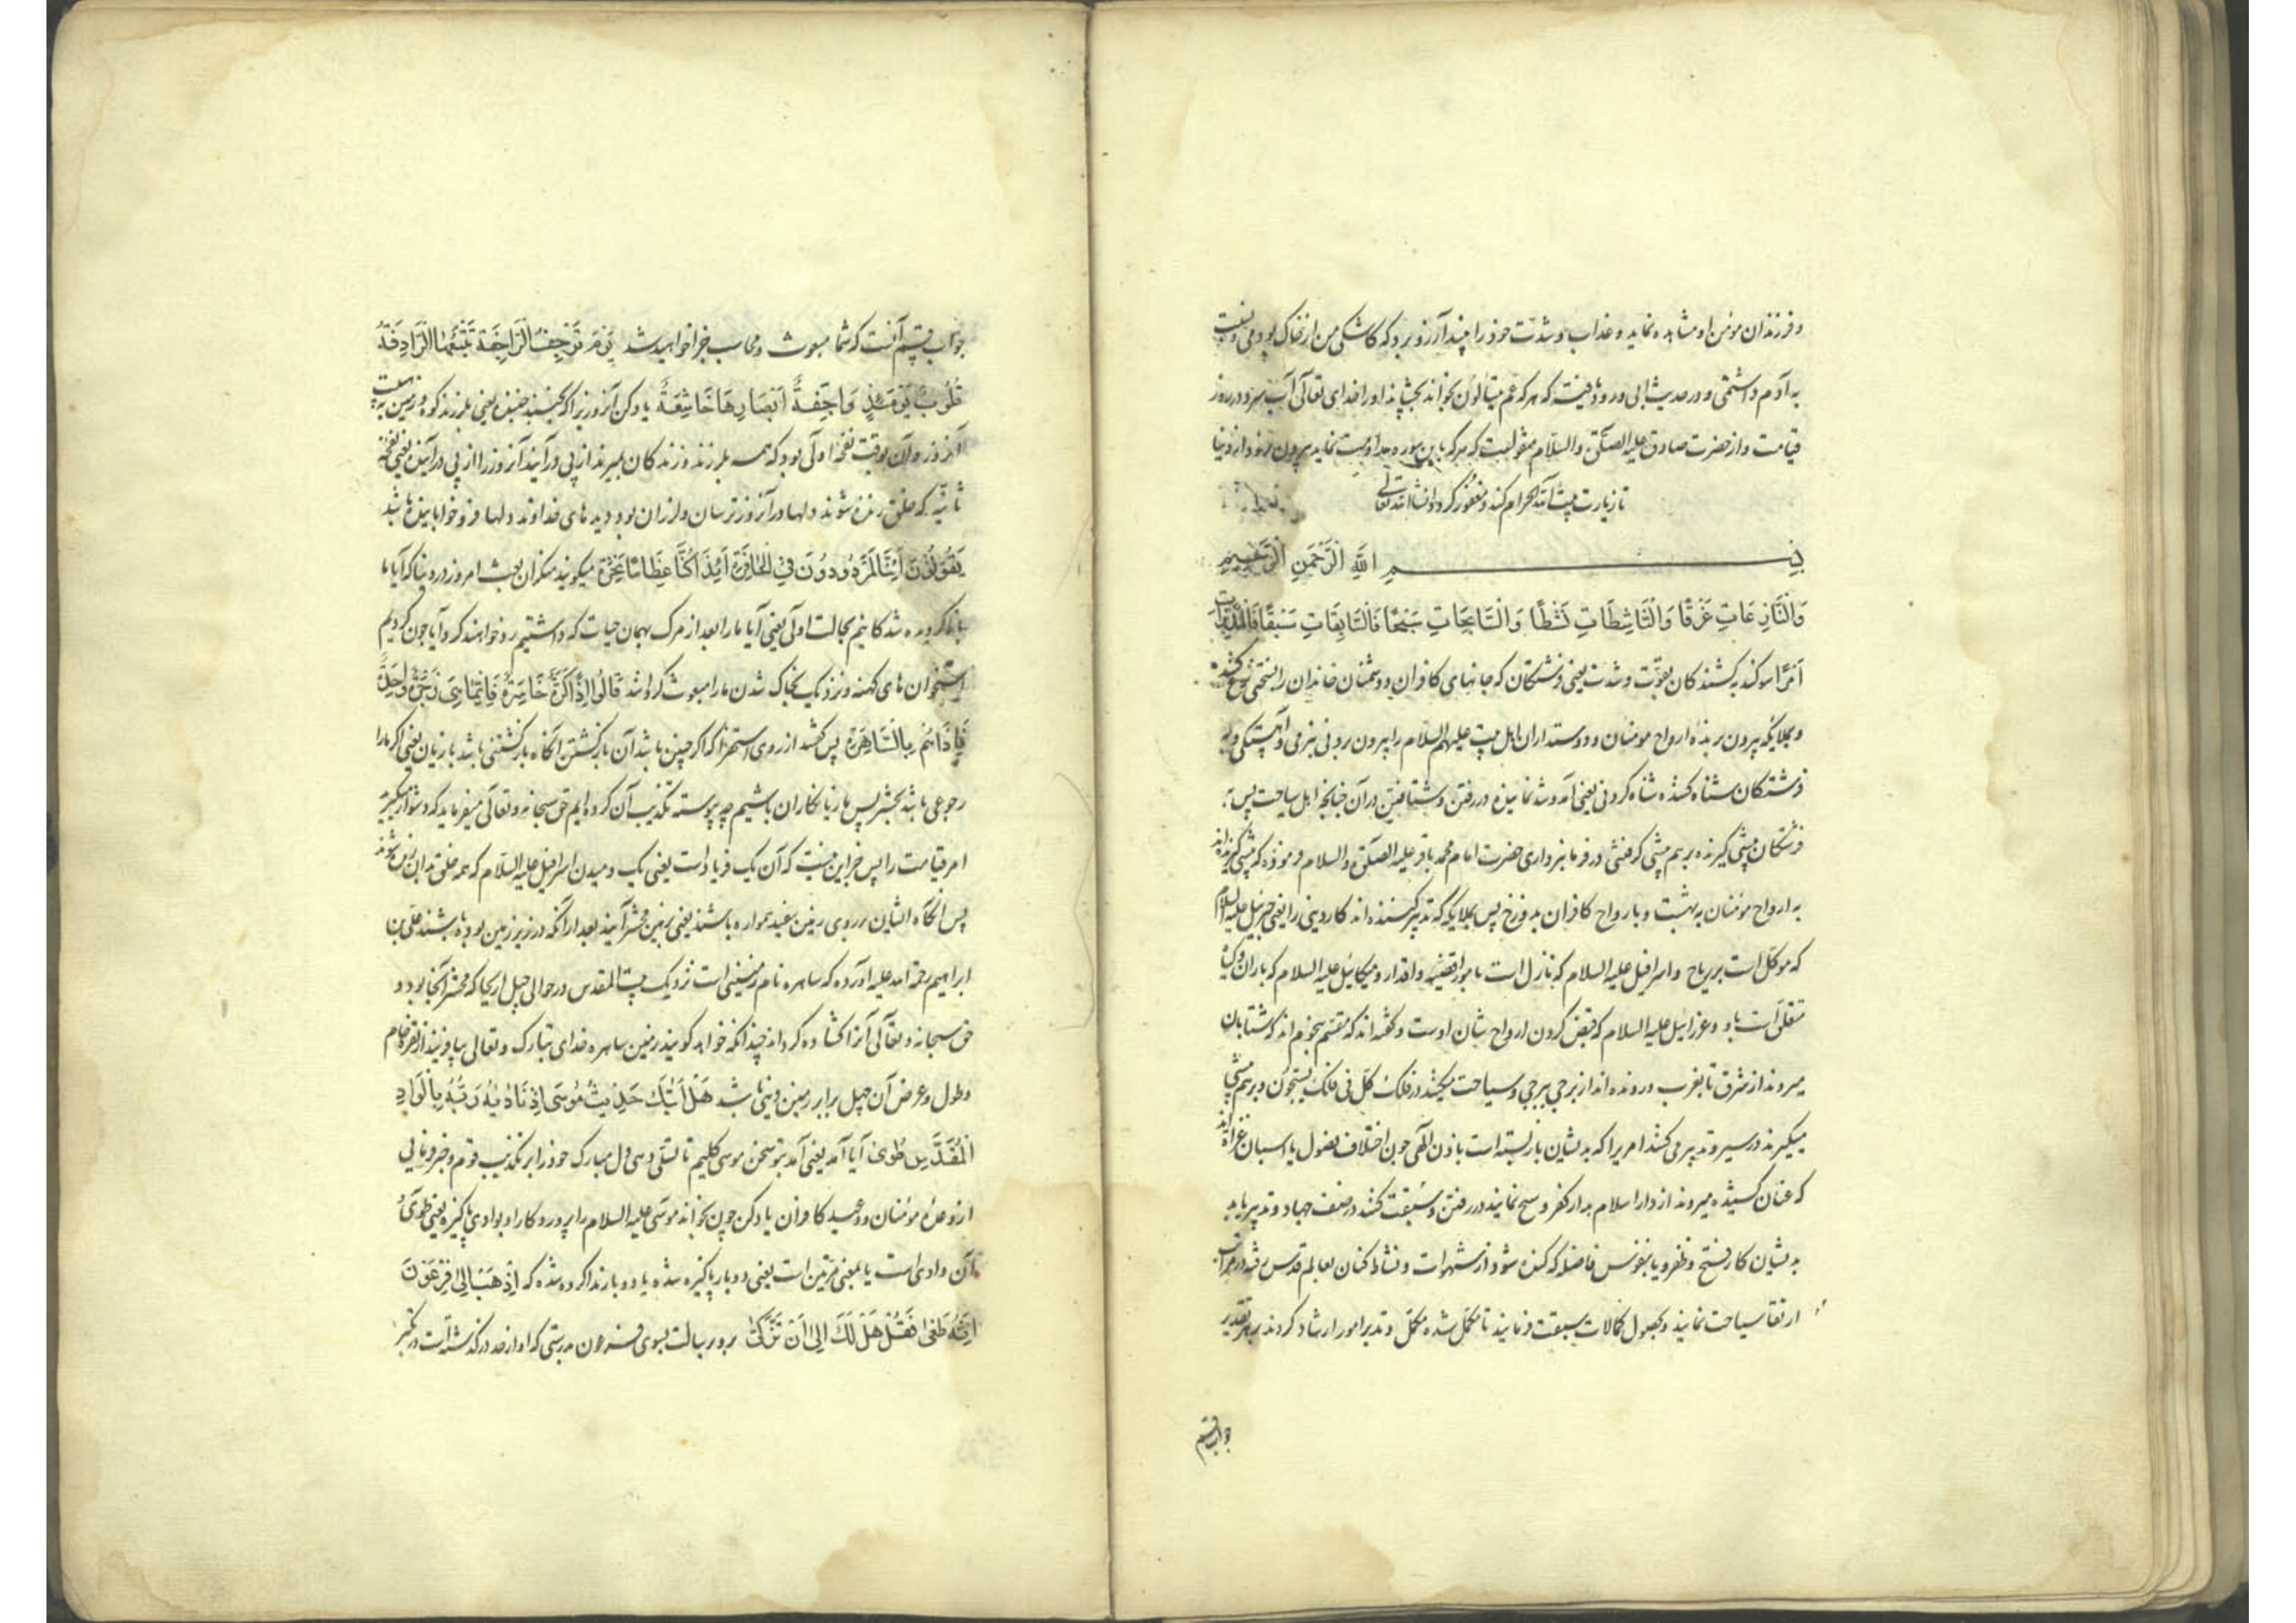 و فرزندان مؤمن او مشاهده نماید و عذاب و شدت خود را بیند آرزو برد که کاشکی من از خاک بودمی و نسبت
به آدم داشتمی و در حدیث ابی ورود یافته که هر که عم یتسالون بخواند بچشاند او را خدای تعالی آب سرد در روز
قیامت و از حضرت صادق علیه الصلوة والسلام منقولست که هر که باین سوره مداومت نماید بیرون نرود از دنیا
تا زیارت بیت الله الحرام کند و مغفور گردد انشاالله تعالی
بسم الله الرحمن الرحیم
وَالنَّازِعَاتِ غَرْقًا وَالنَّاشِطَاتِ نَشْطًا وَالسَّابِحَاتِ سَبْحًا فَالسَّابِقَاتِ سَبْقًا فَالْمُدَبِّرَاتِ
اَمْرًا سوکند به کشندکان بقوت و شدت یعنی فرشتکان که جانهای کافران و دشمنان خاندان را بسختی نزع کنند
و بملایکه بیرون برنده ارواح مومنان و دوستداران اهل بیت علیهم السلام را بیرون بردنی بنرمی و آهستکی و به
فرشتکان شناه کننده شناه کردنی یعنی آمد و شد نماینده در رفتن و شتافتن در آن چنانچه اهل سیاحت پس به
فرشتکان پیشی کیرنده بر هم پیشی کرفتنی در فرمانبرداری حضرت امام محمد باقر علیه الصلوة والسلام فرموده که پیشی کیرنده اند
به ارواح مومنان به بهشت و بارواح کافران بدوزخ پس بملایکه که تدبیر کننده اند کار دینی را یعنی جبرئیل علیه السلام
که موکل است بر ریاح و اسرافیل علیه السلام که نازل است بامور اقضیه و اقدار و میکائیل علیه السلام که باران و کیا
متعلق است باو و عزرائیل علیه السلام که قبض کردن ارواح بشان اوست و گفته اند که مقسم بنجوم اند که شتابان
میروند از مشرق تا بمغرب و رونده اند از برجی ببرجی و سیاحت میکنند در فلک کل فی فلک یسبحون و بر هم پیشی
میکیرند در سیر و تدبیر می کنند امریرا که بدیشان باز بسته است باذن الهی چون اختلاف فصول یا اسبان غزاة اند
که عنان کشیده میروند از دار اسلام بدار کفر و سبح نمایند در رفتن و سبقت کنند در صف جهاد و تدبیر یابد
بدیشان کار فتح و ظفر و یا بنفوس فاضله که کنده شود از شهوات و نشاط کنان بعالم قدس رفته در مراتب
ارتقا سیاحت نمایند و بحصول کمالات سبقت فرمایند تا مکمل شده مکمل و تدبر امور ارشاد کردند بهر تقدیر
جواب قسم
جواب قسم آنست که شما مبعوث و محاسب خواهید شد يَوْمَ تَرْجُفُ الرَّاجِفَةُ تَتْبَعُهَا الرَّادِفَةُ
قُلُوبٌ يَوْمَئِذٍ وَاجِفَةٌ اَبْصَارُهَا خَاشِعَةٌ یاد کن آنروز را که بجنبد جنبنده یعنی بلرزند کوه و زمین
آنروز و آن بوقت نفخه اولی بود که همه بلرزند و زندکان بمیرند از پی در آیند آنروز را از پی در آینده یعنی نفخه
ثانیه که خلق زنده شوند دلها در آنروز ترسان و لرزان بود و دیدهای خداوند دلها فرو خوابانیده باشد
يَقُولُونَ اَئِنَّا لَمَرْدُودُونَ فِي الْحَافِرَةِ اَئِذَا كُنَّا عِظَامًا نَخِرَةً میکویند منکران بعث امروز در دنیا که آیا ما
باز کردیده شدکانیم بحالت اولی یعنی آیا ما را بعد از مرک بهمان حیات که داشتیم رد خواهند کرد و آیا چون کردیم
استخوان های کهنه و نزدیک بخاک شدن ما را مبعوث کردانند قَالُوا اِذًا كَرَّةٌ خَاسِرَةٌ فَاِنَّمَا هِيَ زَجْرَةٌ وَاحِدَةٌ
فَاِذَا هُمْ بِالسَّاهِرَةِ پس کفتند از روی استهزا که اکر چنین باشد آن بازکشتن آنکاه بازکشتنی باشد با زیان یعنی اکر ما را
رجوعی باشد بحشر پس ما زیانکاران باشیم چه پیوسته تکذیب آن کرده ایم حق سبحانه و تعالی میفرماید که دشوار مکیرید
امر قیامت را پس جز این نیست که آن یک فریاد است یعنی یک دمیدن اسرافیل علیه السلام که همه خلق بدان زنده شوند
پس آنکاه ایشان بر روی زمین سفید هموار باشند یعنی بزمین محشر آیند بعد از آنکه در زیر زمین بوده باشند علی بن
ابراهیم رحمة الله علیه آورده که ساهره نام زمینی است نزدیک بیت المقدس در حوالی جبل اریحا که محشر آنجا بود و
حق سبحانه و تعالی آنرا کشاده کرداند چندانکه خواهد کویند زمین ساهره خدای تبارک و تعالی بیافریند از نقره خام
و طول و عرض آن چهل برابر زمین دنیا باشد هَلْ اَتَيكَ حَدِيثُ مُوسَى اِذْ نَادَيهُ رَبُّهُ بِالْوَادِ
الْمُقَدَّسِ طُوًى آیا آمد یعنی آمد بتو سخن موسی کلیم تا تسلی دهی دل مبارک خود را بر تکذیب قوم و خبر فرمایی
از وعده مومنان و وعید کافران یاد کن چون بخواند موسی علیه السلام را پروردکار او بوادی پاکیزه یعنی طوی
آن وادی است یا بمعنی مرتین است یعنی دو بار پاکیزه شده یا دو بار ندا کرده شده که اِذْهَبْ اِلَى فِرْعَوْنَ
اِنَّهُ طَغَى فَقُلْ هَلْ لَكَ اِلَى اَنْ تَزَكَّى برو برسالت بسوی فرعون بدرستی که او از حد در گذشته است در تکبر